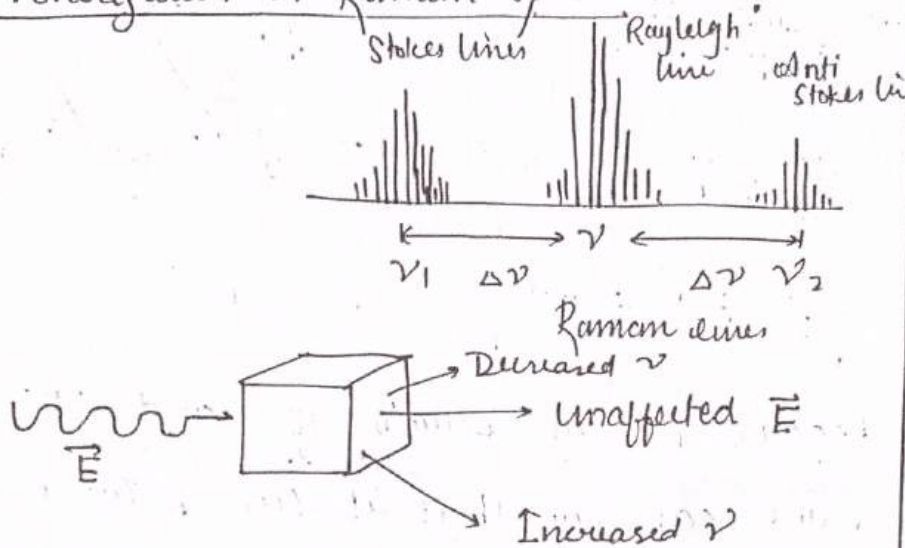 Raman
Stokes lines
Rayleigh line
Anti Stokes
ν₁ Δν ν Δν ν₂
Raman lines
Decreased ν
unaffected E⃗
E⃗
Increased ν